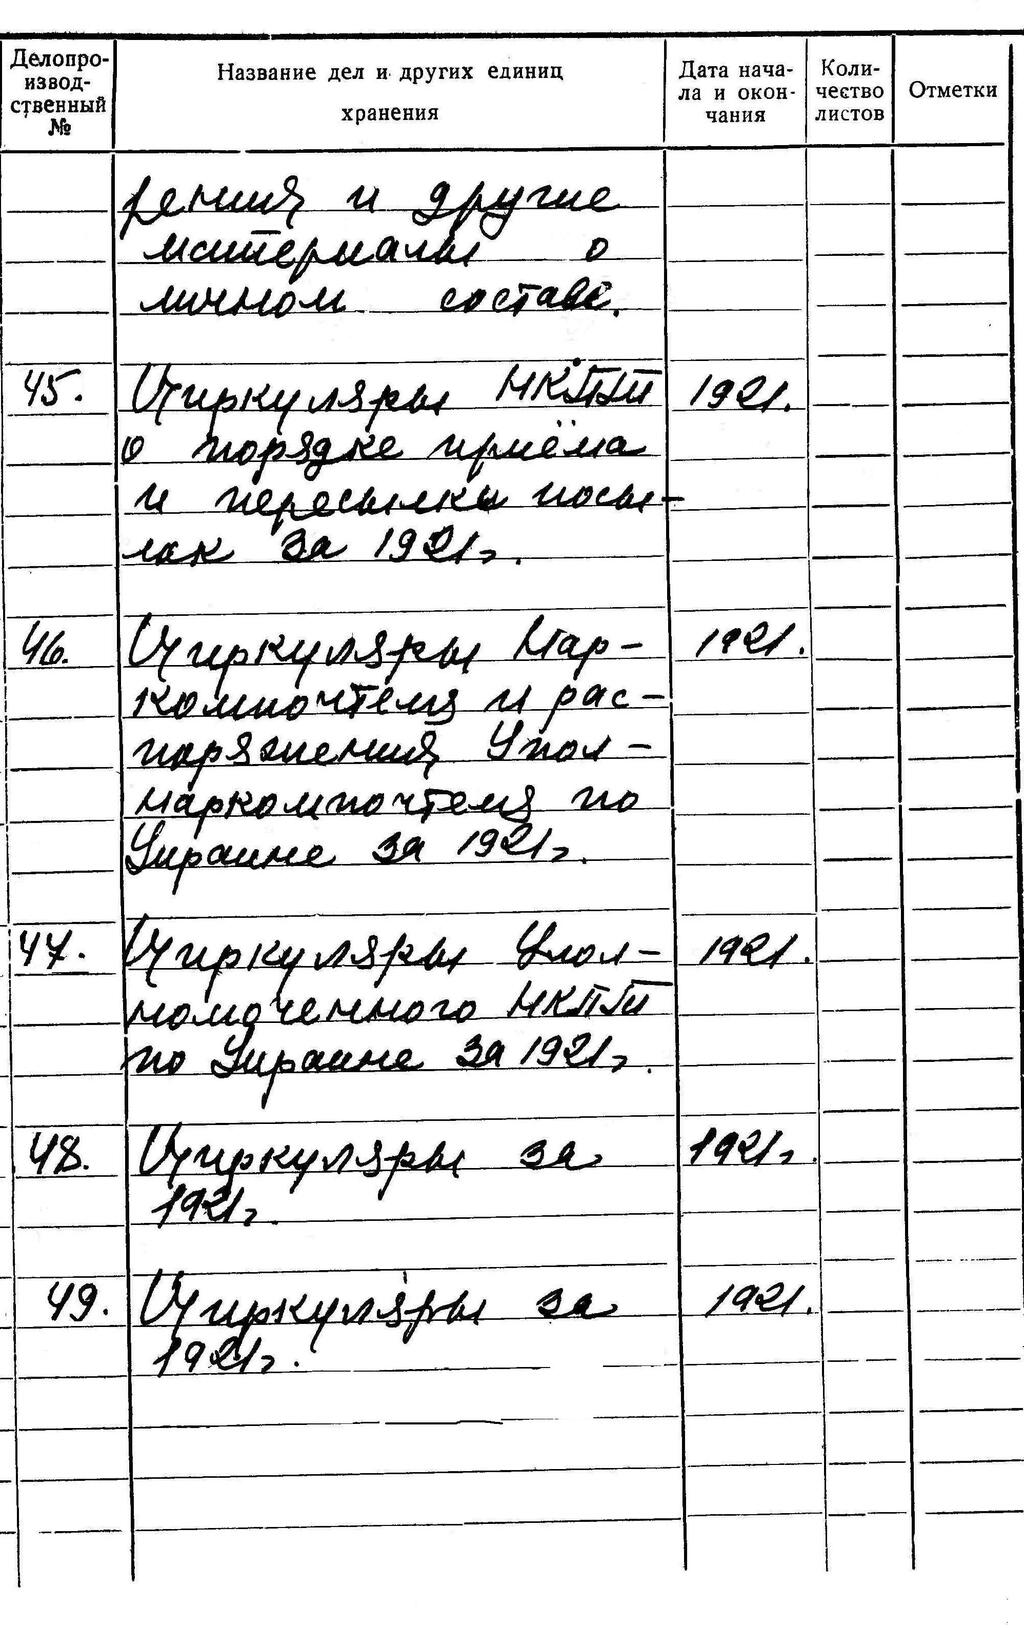 Делопро-
извод-
ственный
№
Название дел и других единиц
хранения
Дата нача-
ла и окон-
чания
Коли-
чество
листов
Отметки
рения и другие
материалы о
личном составе.
45. Циркуляры НКПТ 1921.
о порядке приёма
и пересылки посы-
лок за 1921г.
46. Циркуляры Нар- 1921.
компочтеля и рас-
поряжения Упол-
наркомпочтеля по
Украине за 1921г.
47. Циркуляры Упол- 1921.
номоченного НКПТ
по Украине за 1921г.
48. Циркуляры за 1921г.
1921г.
49. Циркуляры за 1921.
1921г.